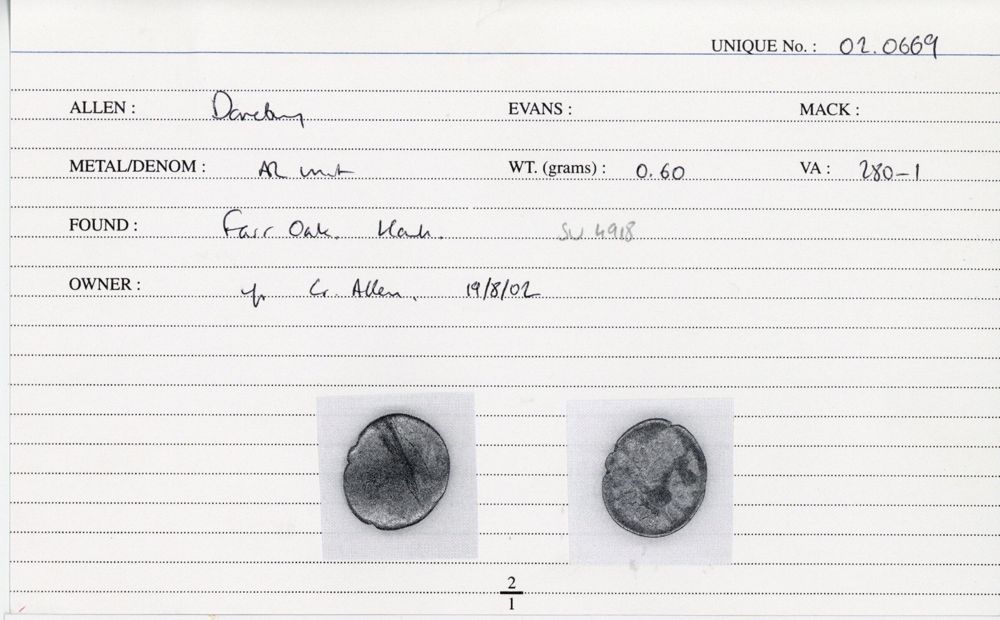 UNIQUE No. : 02.0669
ALLEN : Danebury EVANS : MACK :
METAL/DENOM : AR unit WT. (grams) : 0.60 VA : 280-1
FOUND : Fair Oak. Hants. SU 4918
OWNER : G. Allen. 19/8/02
2
1